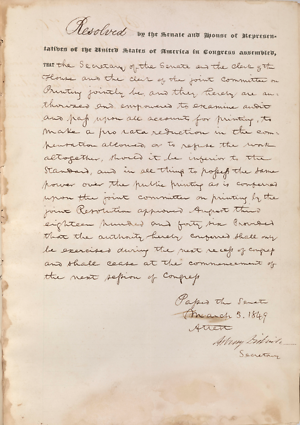 Resolved by the Senate and House of Represen-
tatives of the United States of America in Congress assembled,
THAT the Secretary of the Senate and the clerk of the
House and the clerk of the joint Committee on
Printing jointly be and they hereby are au-
thorized and empowered to examine audit
and pass upon all account for printing, to
make a pro rata reduction in the com-
pensation allowed or to refuse the work
altogether, should it be inferior to the
Standard, and in all things to possess the same
power over the public printing as is conferred
upon the joint committee on printing by the
joint Resolution approved August third
eighteen hundred and forty six provided
that the authority hereby conferred shall only
be exercised during the next recess of Congress
and shall cease at the commencement of
the next session of Congress
Passed the Senate
March 3. 1849
Attest
Secretary